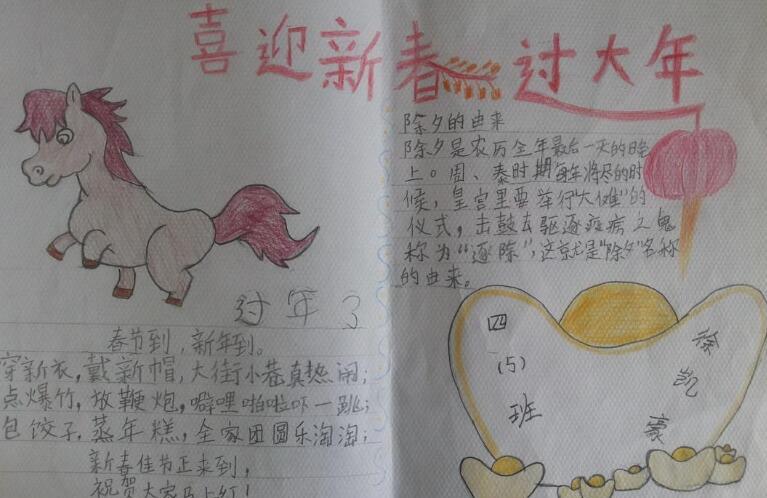 喜迎新春 过大年
除夕的由来
除夕是农历全年最后一天的晚
上。周、秦时期每年将尽的时
候，皇宫里要举行“大傩”的
仪式，击鼓去驱逐疫病之鬼
称为“逐除”，这就是“除夕”名称
的由来。
过年了
春节到，新年到。
穿新衣，戴新帽，大街小巷真热闹；
点爆竹，放鞭炮，噼哩啪啦吓一跳；
包饺子，蒸年糕，全家团圆乐淘淘；
新春佳节正来到，
祝贺大家马上红！
四
(5)
班
徐凯豪